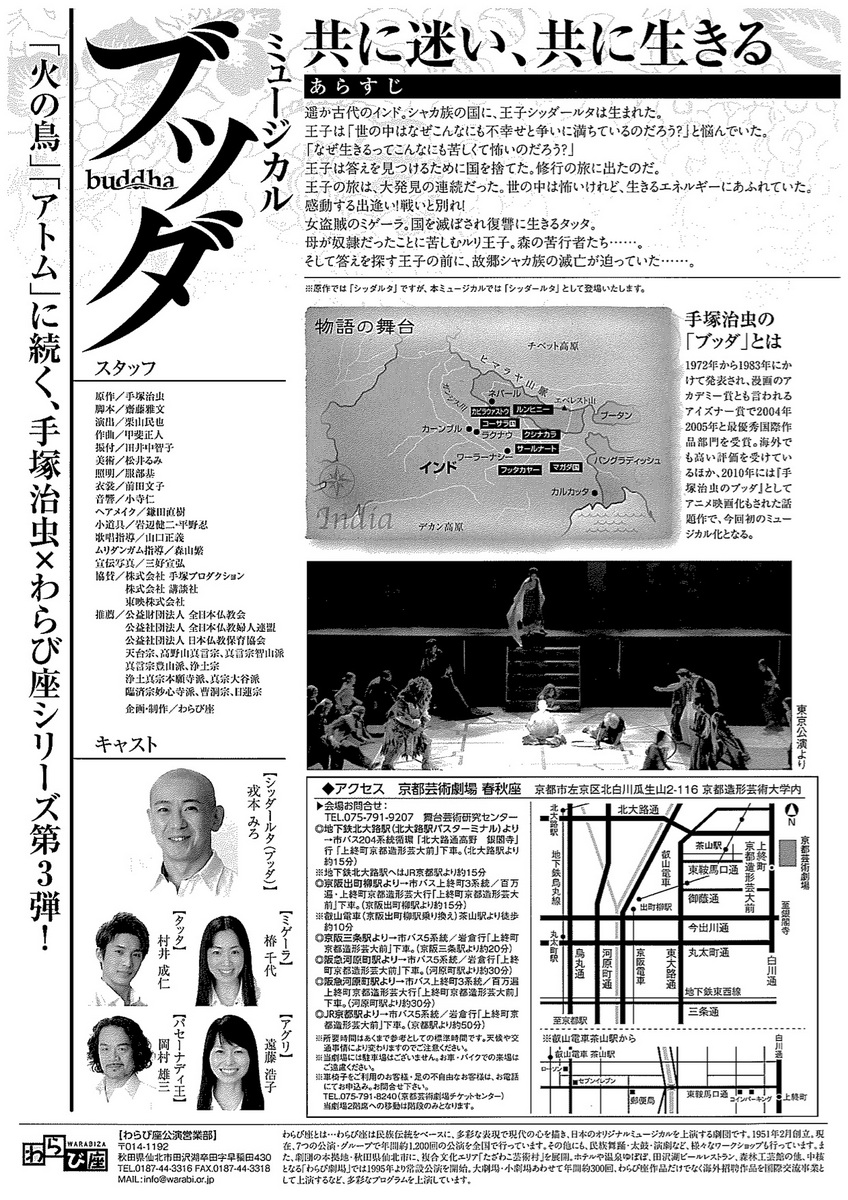 「火の鳥」「アトム」に続く、手塚治虫×わらび座シリーズ第3弾！
ミュージカル
ブッダ
buddha
共に迷い、共に生きる
あらすじ
遥か古代のインド。シャカ族の国に、王子シッダールタは生まれた。
王子は「世の中はなぜこんなにも不幸せと争いに満ちているのだろう?」と悩んでいた。
「なぜ生きるってこんなにも苦しくて怖いのだろう?」
王子は答えを見つけるために国を捨てた。修行の旅に出たのだ。
王子の旅は、大発見の連続だった。世の中は怖いけれど、生きるエネルギーにあふれていた。
感動する出逢い!戦いと別れ!
女盗賊のミゲーラ。国を滅ぼされ復讐に生きるタッタ。
母が奴隷だったことに苦しむルリ王子。森の苦行者たち……。
そして答えを探す王子の前に、故郷シャカ族の滅亡が迫っていた……。
※原作では「シッダルタ」ですが、本ミュージカルでは「シッダールタ」として登場いたします。
スタッフ
原作／手塚治虫
脚本／齋藤雅文
演出／栗山民也
作曲／甲斐正人
振付／田井中智子
美術／松井るみ
照明／服部基
衣裳／前田文子
音響／小寺仁
ヘアメイク／鎌田直樹
小道具／岩辺健二・平野忍
歌唱指導／山口正義
ムリダンガム指導／森山繁
宣伝写真／三好宣弘
協賛／株式会社 手塚プロダクション
株式会社 講談社
東映株式会社
推薦／公益財団法人 全日本仏教会
公益社団法人 全日本仏教婦人連盟
公益社団法人 日本仏教保育協会
天台宗、高野山真言宗、真言宗智山派
真言宗豊山派、浄土宗
浄土真宗本願寺派、真宗大谷派
臨済宗妙心寺派、曹洞宗、日蓮宗
企画・制作／わらび座
物語の舞台
チベット高原
ヒマラヤ山脈
ガンジス川
ネパール
エベレスト山
カピラヴァストウ
ルンビニー
ブータン
コーサラ国
カーンプル
ラクナウ
クシナカラ
サールナート
ワーラーナシー
バングラディッシュ
インド
ブッタガヤー
マガダ国
カルカッタ
India
デカン高原
手塚治虫の
「ブッダ」とは
1972年から1983年にか
けて発表され、漫画のア
カデミー賞とも言われる
アイズナー賞で2004年
2005年と最優秀国際作
品部門を受賞。海外で
も高い評価を受けてい
るほか、2010年には『手
塚治虫のブッダ』として
アニメ映画化もされた話
題作で、今回初のミュー
ジカル化となる。
東京公演より
キャスト
【シッダールタ(ブッダ)】
戎本 みろ
【タッタ】
村井 成仁
【ミゲーラ】
椿 千代
【パセーナディ王】
岡村 雄三
【アグリ】
遠藤 浩子
◆アクセス 京都芸術劇場 春秋座 京都市左京区北白川瓜生山2-116 京都造形芸術大学内
▶会場お問合せ:
TEL.075-791-9207 舞台芸術研究センター
◎地下鉄北大路駅(北大路駅バスターミナル)より
→市バス204系統循環「北大路通高野 銀閣寺」
行「上終町京都造形芸大前」下車。(北大路駅より
約15分)
※地下鉄北大路駅へはJR京都駅より約15分
◎京阪出町柳駅より→市バス上終町3系統／百万
遍・上終町京都造形芸大行「上終町京都造形芸大
前」下車。(京阪出町柳駅より約15分)
※叡山電車(京阪出町柳駅乗り換え)茶山駅より徒歩
約10分
◎京阪三条駅より→市バス5系統／岩倉行「上終町
京都造形芸大前」下車。(京都駅より約20分)
◎阪急河原町駅より→市バス5系統／岩倉行「上終
町京都造形芸大前」下車。(河原町駅より約30分)
◎阪急河原町駅より→市バス上終町3系統／百万遍
上終町京都造形芸大行「上終町京都造形芸大前」
下車。(河原町駅より約30分)
◎JR京都駅より→市バス5系統／岩倉行「上終町京
都造形芸大前」下車。(京都駅より約50分)
※所要時間はあくまで参考としての標準時間です。天候や交
通事情により変わりますのでご注意ください。
※当劇場には駐車場はございません。お車・バイクでの来場は
ご遠慮ください。
※車椅子をご利用のお客様・足の不自由なお客様は、お電話
にてお申込み。お問合せ下さい。
TEL.075-791-8240(京都芸術劇場チケットセンター)
当劇場2階席への移動は階段のみとなります。
北大路駅
北大路通
N
茶山駅
上終町
京都造形芸大前
京都芸術劇場
地下鉄烏丸線
叡山電車
東鞍馬口通
御蔭通
出町柳駅
至銀閣寺
今出川通
丸太町駅
丸太町通
烏丸通
河原町通
京阪電車
東大路通
白川通
地下鉄東西線
三条通
至京都駅
※叡山電車茶山駅から
叡山電車 茶山駅
白川通
ローソン
セブンイレブン
郵便局
東鞍馬口通
コインパーキング
上終町
わらび座
WARABIZA
【わらび座公演営業部】
〒014-1192
秋田県仙北市田沢湖卒田字早稲田430
TEL.0187-44-3316 FAX.0187-44-3318
MAIL：info@warabi.or.jp
わらび座とは…わらび座は民族伝統をベースに、多彩な表現で現代の心を描き、日本のオリジナルミュージカルを上演する劇団です。1951年2月創立。現
在、7つの公演・グループで年間約1,200回の公演を全国で行っています。その他にも、民族舞踊・太鼓・演劇など、様々なワークショップも行っています。ま
た、劇団の本拠地・秋田県仙北市に、複合文化エリア「たざわこ芸術村」を展開。ホテルや温泉ゆぽぽ、田沢湖ビールレストラン、森林工芸館の他、中核
となる「わらび劇場」では1995年より常設公演を開始。大劇場・小劇場あわせて年間約300回、わらび座作品だけでなく海外招聘作品を国際交流事業と
して上演するなど、多彩なプログラムを上演しています。